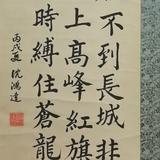 不到長城非
上高峰紅旗
時縛住蒼龍
丙戌夏 沈鴻達